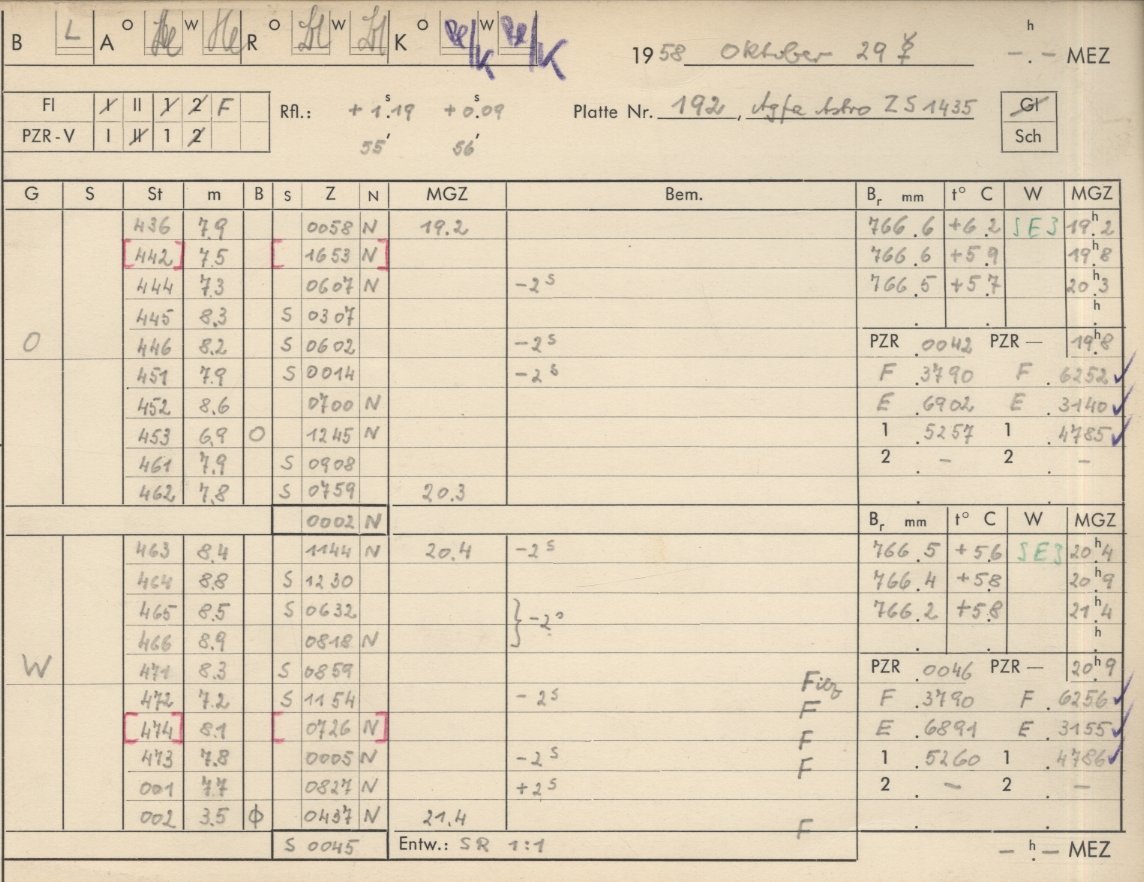 B L A O He W He R O Dl W Dl K O W h
1958 Oktober 29 ☿ –.– MEZ
Fl I II 1 2 F Rfl.: +1.ˢ19 +0.ˢ09 Platte Nr. 192, Agfa Astro ZS 1435 Gl
PZR-V I II 1 2 55′ 56′ Sch
G S St m B S Z N MGZ Bem. Bᵣ mm t° C W MGZ
436 7.9 0058 N 19.2 766.6 +6.2 SE3 19ʰ.2
[442] 7.5 [1653 N] 766.6 +5.9 19ʰ.8
444 7.3 0607 N -2ˢ 766.5 +5.7 20ʰ.3
445 8.3 S 0307 . . h
O 446 8.2 S 0602 -2ˢ PZR .0042 PZR – 19ʰ.8
451 7.9 S 0014 -2ˢ F .3790 F .6252 ✓
452 8.6 0700 N E .6902 E .3140 ✓
453 6.9 O 1245 N 1 .5257 1 .4785 ✓
461 7.9 S 0908 2 . – 2 . –
462 7.8 S 0759 20.3 . .
0002 N Bᵣ mm t° C W MGZ
463 8.4 1144 N 20.4 -2ˢ 766.5 +5.6 SE3 20ʰ.4
464 8.8 S 1230 766.4 +5.8 20ʰ.9
465 8.5 S 0632 } -2ˢ 766.2 +5.8 21ʰ.4
466 8.9 0818 N . . h
W 471 8.3 S 0859 PZR .0046 PZR – 20ʰ.9
472 7.2 S 1154 -2ˢ Filz F .3790 F .6256 ✓
[474] 8.1 [0726 N] F E .6891 E .3155 ✓
473 7.8 0005 N -2ˢ F 1 .5260 1 .4786 ✓
001 7.7 0827 N +2ˢ F 2 . – 2 . –
002 3.5 ϕ 0437 N 21.4 F . .
S 0045 Entw.: SR 1:1 –ʰ.– MEZ